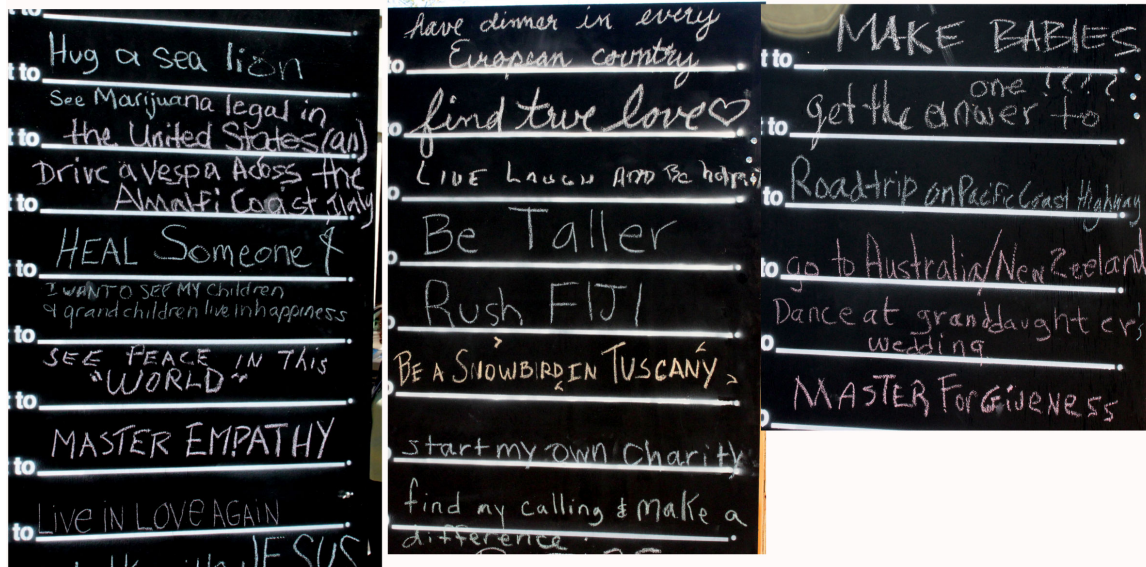 t to
Hug a sea lion
See Marijuana legal in
t to
the United States(an)
Drive a vespa Acoss the
t to
Amalfi Coast, Italy
HEAL Someone
t to
I WANT TO SEE MY Children
& grand children live in happiness
t to
SEE PEACE IN This
"WORLD"
t to
MASTER EMPATHY
t to
Live IN LOVE AGAIN
t to
JESUS
have dinner in every
European country
to
find true love♡
to
LIVE LAUGH AND Be
Be Taller
Rush FIJI
BE A SNOWBIRD IN TUSCANY
start my own Charity
find my calling & make a
difference.
MAKE BABIES
t to
one !???
get the answer to
t to
Roadtrip on Pacific Coast Highway
to
go to Australia/New Zeeland
to
Dance at granddaughter,
wedding
MASTER, ForGiveNess